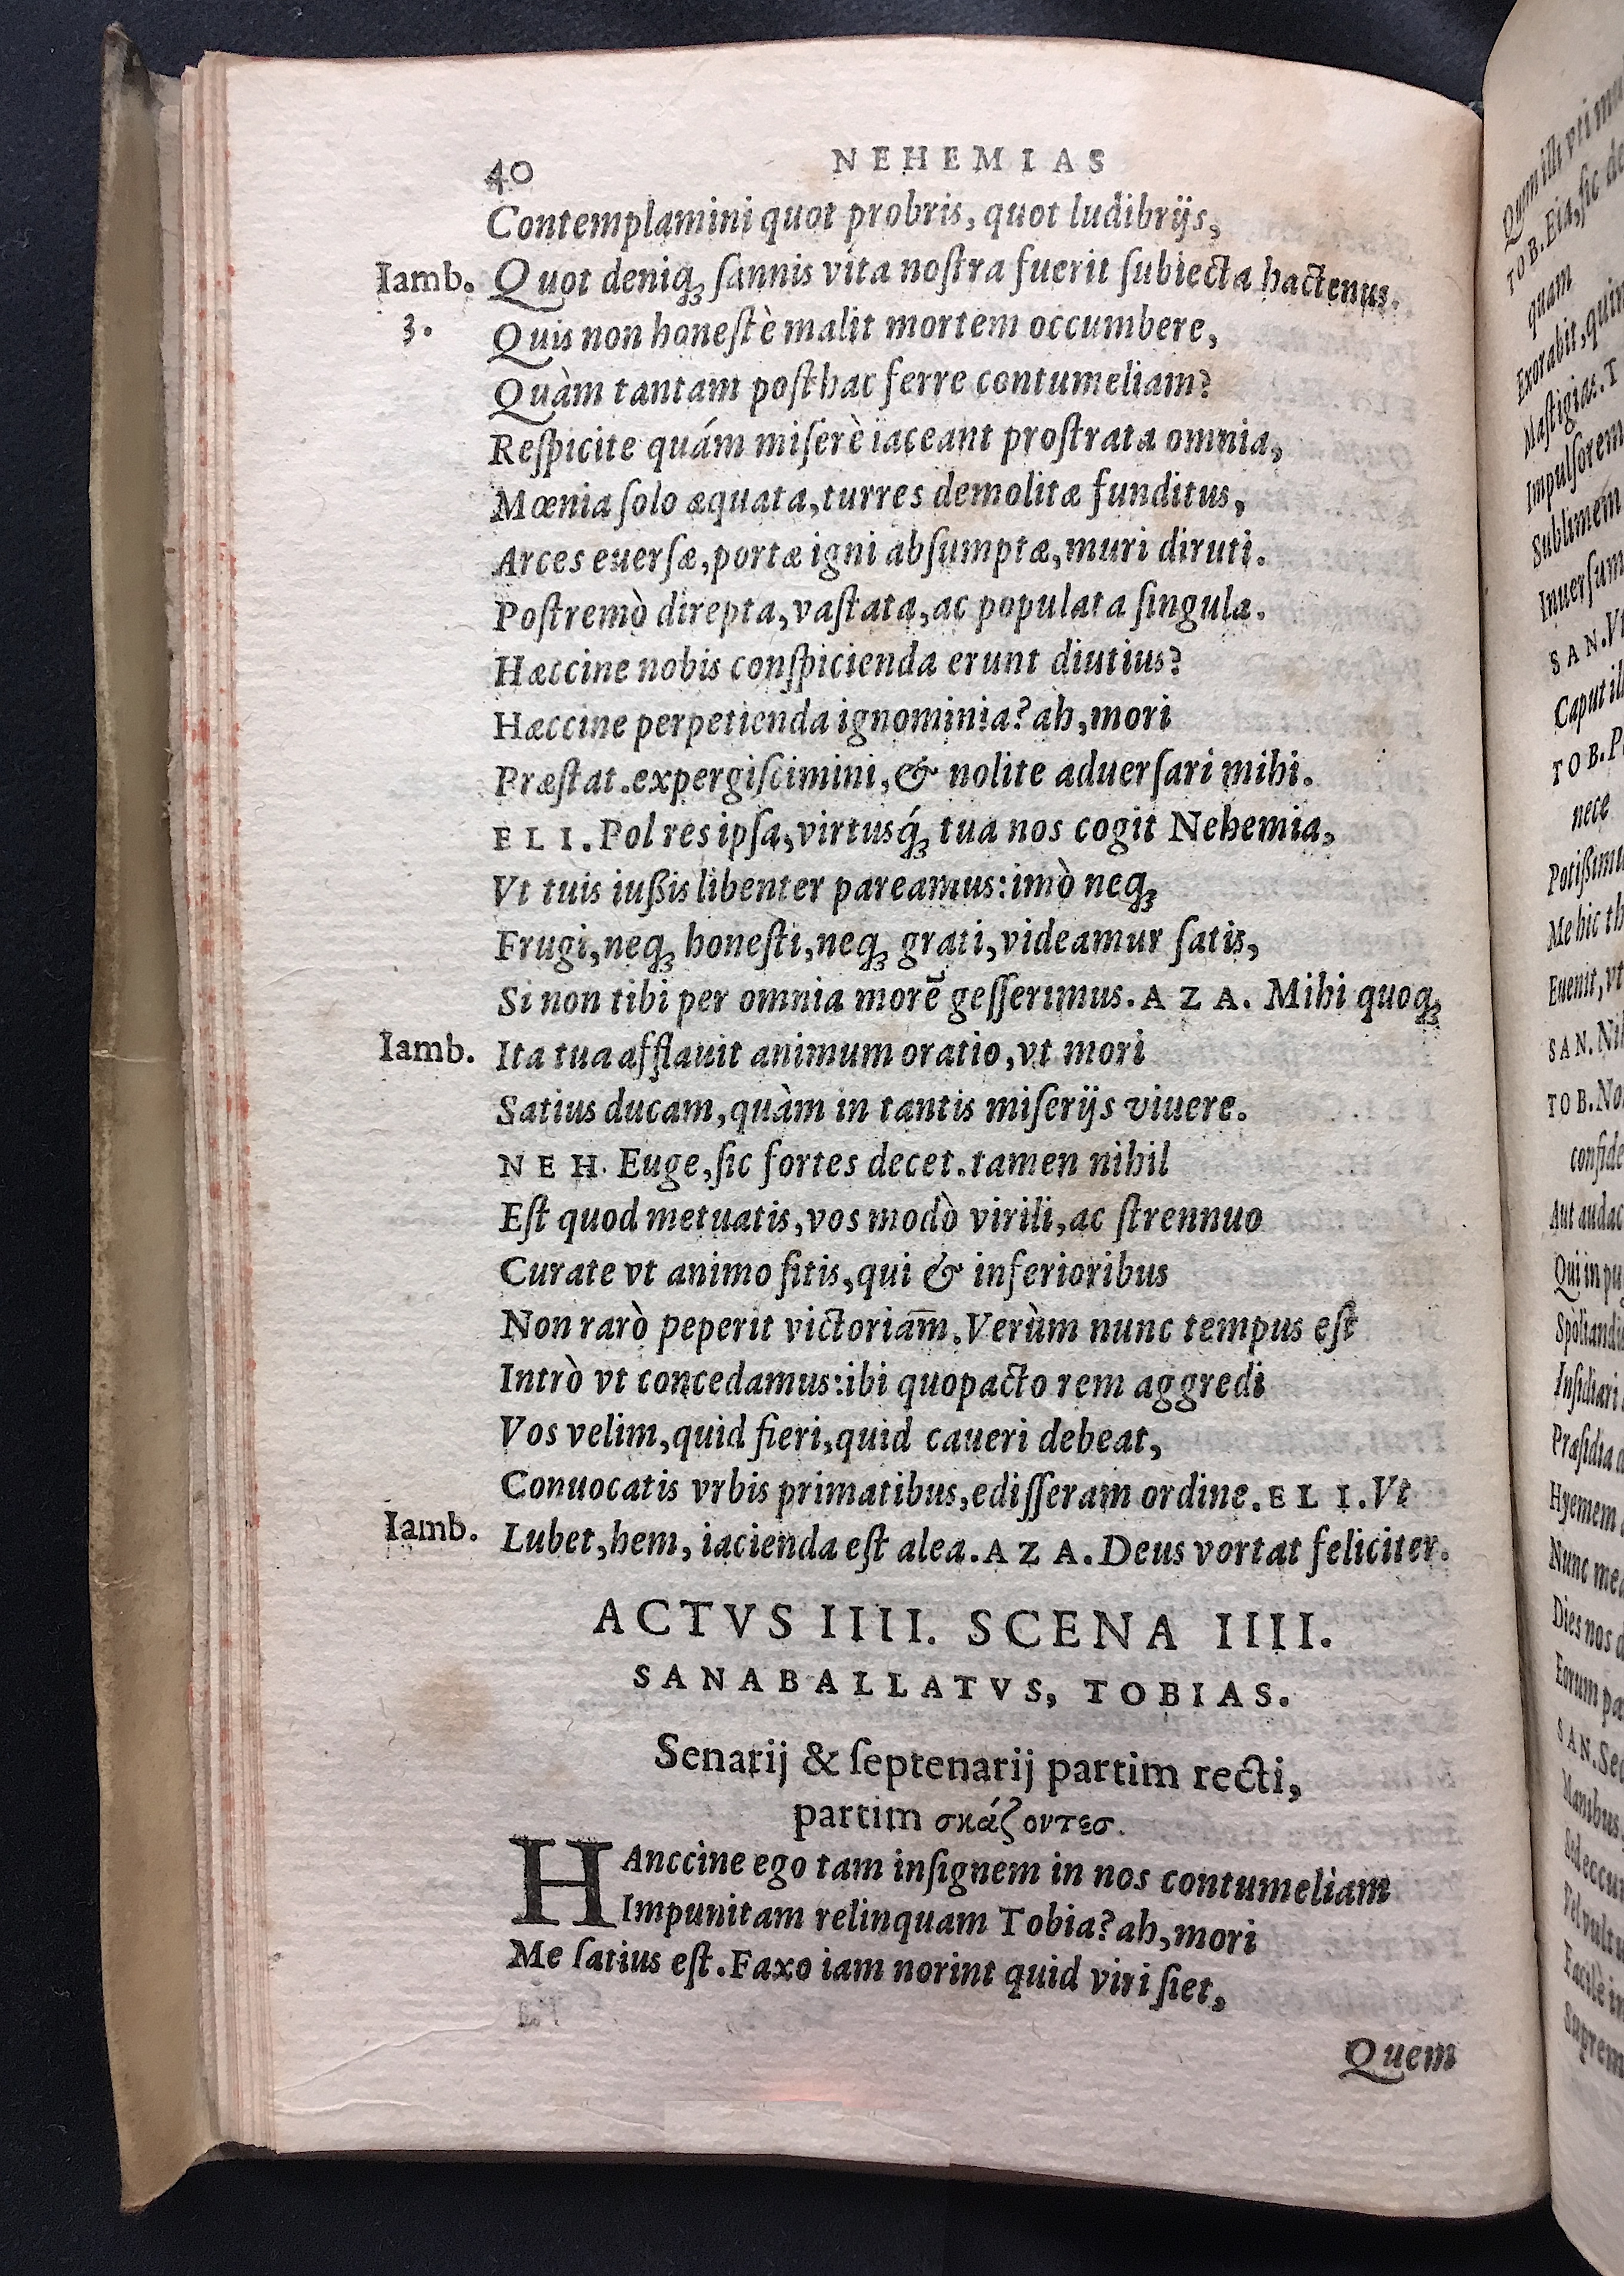 40 NEHEMIAS
Contemplamini quot probris, quot ludibrijs,
Iamb. Quot deniq; ſannis vita noſtra fuerit ſubiecta hactenus.
3. Quis non honeſtè malit mortem occumbere,
Quàm tantam poſthac ferre contumeliam?
Reſpicite quám miſerè iaceant proſtrata omnia,
Mœnia ſolo æquata, turres demolitæ funditus,
Arces euerſæ, portæ igni abſumptæ, muri diruti.
Poſtremò direpta, vaſtata, ac populata ſingula.
Hæccine nobis conſpicienda erunt diutius?
Hæccine perpetienda ignominia? ah, mori
Præſtat. expergiſcimini, & nolite aduerſari mihi.
ELI. Pol res ipſa, virtusq́; tua nos cogit Nehemia,
Vt tuis iußis libenter pareamus: imò neq;
Frugi, neq; honeſti, neq; grati, videamur ſatis,
Si non tibi per omnia morē geſſerimus. AZA. Mihi quoq;
Iamb. Ita tua afflauit animum oratio, vt mori
Satius ducam, quàm in tantis miſerijs viuere.
NEH. Euge, ſic fortes decet. tamen nihil
Eſt quod metuatis, vos modò virili, ac ſtrennuo
Curate vt animo ſitis, qui & inferioribus
Non rarò peperit victoriam̄. Verùm nunc tempus eſt
Intrò vt concedamus: ibi quopacto rem aggredi
Vos velim, quid fieri, quid caueri debeat,
Conuocatis vrbis primatibus, ediſſeram ordine. ELI. Vt
Iamb. Lubet, hem, iacienda eſt alea. AZA. Deus vortat feliciter.
ACTVS IIII. SCENA IIII.
SANABALLATVS, TOBIAS.
Senarij & ſeptenarij partim recti,
partim σκάζοντεσ.
HAnccine ego tam inſignem in nos contumeliam
Impunitam relinquam Tobia? ah, mori
Me ſatius eſt. Faxo iam norint quid viri ſiet,
Quem
Quum illi vti
TOB. Eia, ſic
quam
Exorabit, quin
Maſtigias. T
Impulſorem
Sublimem
Inuerſum
SAN. Vt
Caput
TOB.
nece
Me hic
Euenit, vt
SAN.
TOB.
Aut audac
Qui in
Inſidiari
Præſidia
Hyemem
Nunc
Dies nos
Eorum
SAN.
Manibus
Sed